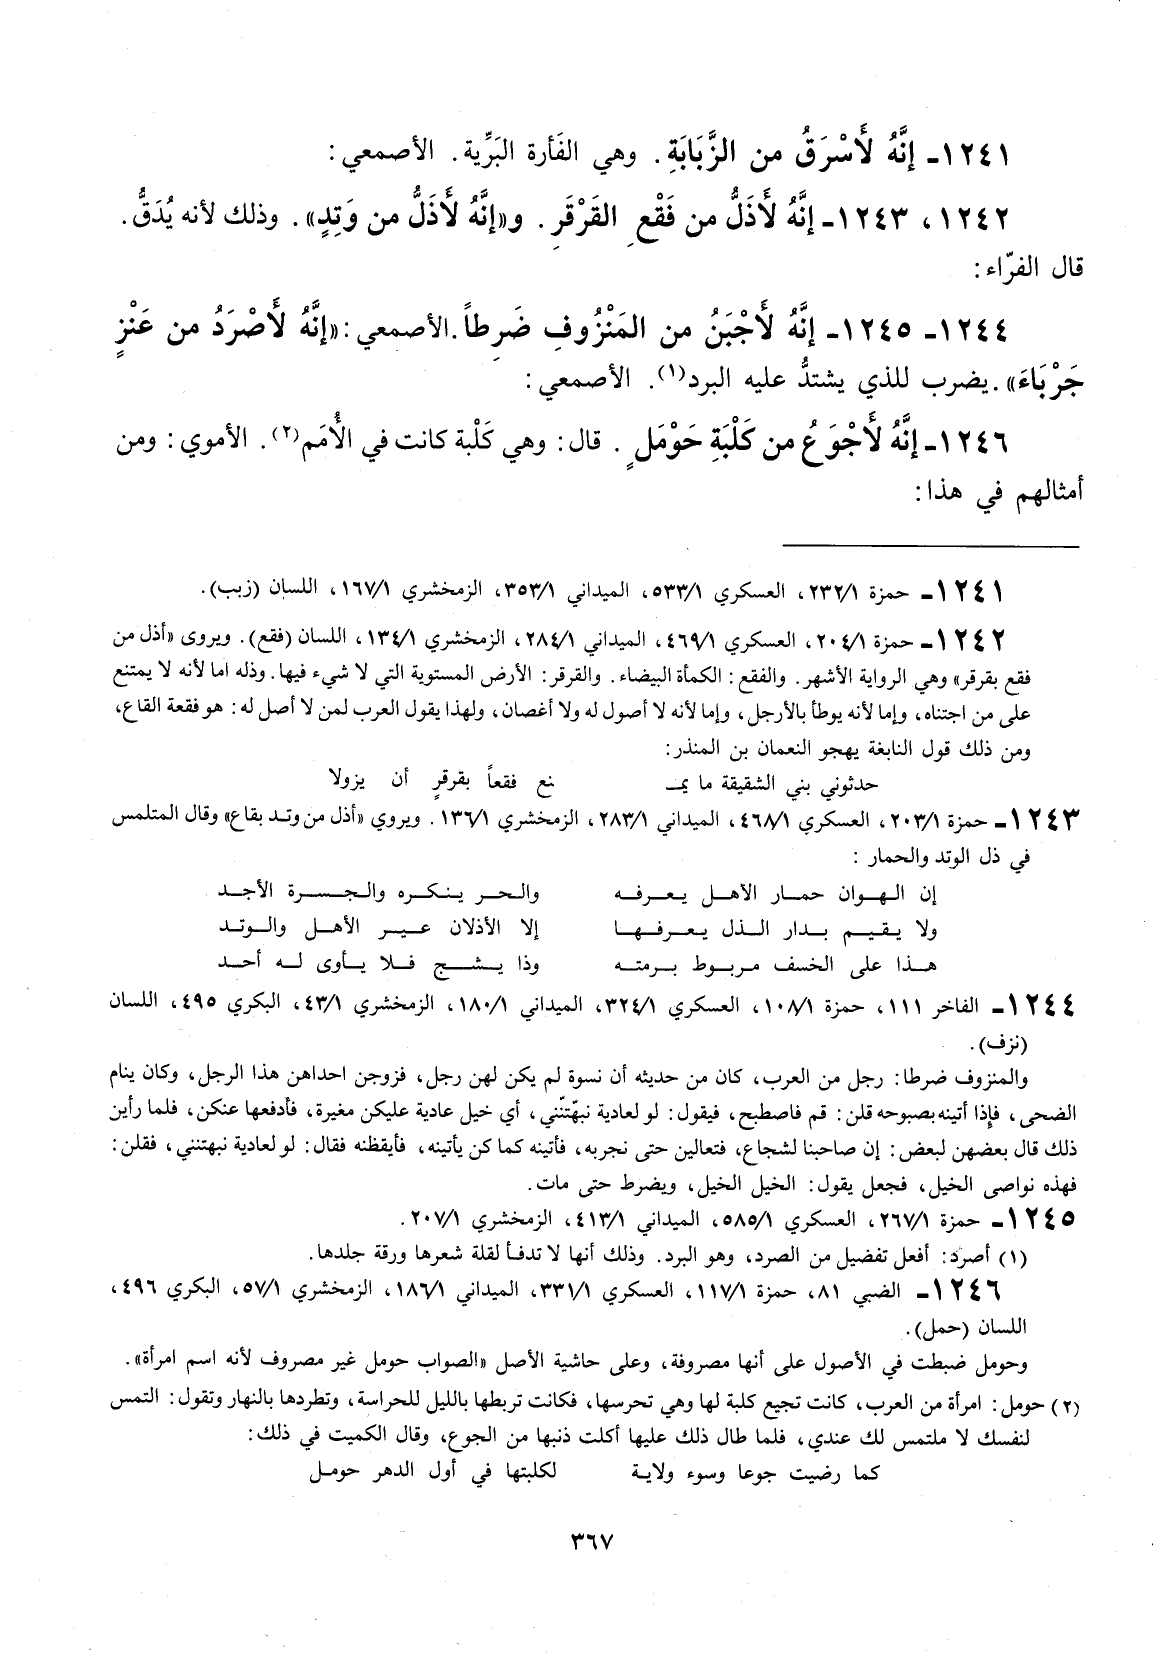 ١٢٤١ـ إنَّهُ لَأَسْرَقُ من الزَّبَابَةِ. وهي الفَأرة البَرِّية. الأصمعي:
١٢٤٢، ١٢٤٣ـ إنَّهُ لَأَذَلُّ من فَقْعِ القَرْقَرِ. و«إنَّهُ لَأَذَلُّ من وَتِدٍ». وذلك لأنه يُدَقُّ.
قال الفرّاء:
١٢٤٤ـ ١٢٤٥ـ إنَّهُ لَأَجْبَنُ من المَنْزُوفِ ضَرِطاً. الأصمعي: «إنَّهُ لَأَصْرَدُ من عَنْزٍ
جَرْبَاءَ». يضرب للذي يشتدُّ عليه البرد(١). الأصمعي:
١٢٤٦ـ إنَّهُ لَأَجْوَعُ من كَلْبَةِ حَوْمَلٍ. قال: وهي كَلْبة كانت في الأُمَم(٢). الأموي: ومن
أمثالهم في هذا:
١٢٤١ـ حمزة ٢٣٢/١، العسكري ٥٣٣/١، الميداني ٣٥٣/١، الزمخشري ١٦٧/١، اللسان (زبب).
١٢٤٢ـ حمزة ٢٠٤/١، العسكري ٤٦٩/١، الميداني ٢٨٤/١، الزمخشري ١٣٤/١، اللسان (فقع). ويروى «أذل من
فقع بقرقر» وهي الرواية الأشهر. والفقع: الكمأة البيضاء. والقرقر: الأرض المستوية التي لا شيء فيها. وذله اما لأنه لا يمتنع
على من اجتناه، وإما لأنه يوطأ بالأرجل، وإما لأنه لا أصول له ولا أغصان، ولهذا يقول العرب لمن لا أصل له: هو فقعة القاع،
ومن ذلك قول النابغة يهجو النعمان بن المنذر:
حدثوني بني الشقيقة ما يمـ نع فقعاً بقرقرٍ أن يزولا
١٢٤٣ـ حمزة ٢٠٣/١، العسكري ٤٦٨/١، الميداني ٢٨٣/١، الزمخشري ١٣٦/١. ويروي «أذل من وتد بقاع» وقال المتلمس
في ذل الوتد والحمار:
إن الهوان حمار الأهل يعرفه والحر ينكره والجسرة الأجد
ولا يقيم بدار الذل يعرفها إلا الأذلان عير الأهل والوتد
هذا على الخسف مربوط برمته وذا يشج فلا يأوى له أحد
١٢٤٤ـ الفاخر ١١١، حمزة ١٠٨/١، العسكري ٣٢٤/١، الميداني ١٨٠/١، الزمخشري ٤٣/١، البكري ٤٩٥، اللسان
(نزف).
والمنزوف ضرطا: رجل من العرب، كان من حديثه أن نسوة لم يكن لهن رجل، فزوجن احداهن هذا الرجل، وكان ينام
الضحى، فإذا أتينه بصبوحه قلن: قم فاصطبح، فيقول: لو لعادية نبهّتنّي، أي خيل عادية عليكن مغيرة، فأدفعها عنكن، فلما رأين
ذلك قال بعضهن لبعض: إن صاحبنا لشجاع، فتعالين حتى نجربه، فأتينه كما كن يأتينه، فأيقظنه فقال: لو لعادية نبهتنني، فقلن:
فهذه نواصى الخيل، فجعل يقول: الخيل الخيل، ويضرط حتى مات.
١٢٤٥ـ حمزة ٢٦٧/١، العسكري ٥٨٥/١، الميداني ٤١٣/١، الزمخشري ٢٠٧/١.
(١) أصرَد: أفعل تفضيل من الصرد، وهو البرد. وذلك أنها لا تدفأ لقلة شعرها ورقة جلدها.
١٢٤٦ـ الضبي ٨١، حمزة ١١٧/١، العسكري ٣٣١/١، الميداني ١٨٦/١، الزمخشري ٥٧/١، البكري ٤٩٦،
اللسان (حمل).
وحومل ضبطت في الأصول على أنها مصروفة، وعلى حاشية الأصل «الصواب حومل غير مصروف لأنه اسم امرأة».
(٢) حومل: امرأة من العرب، كانت تجيع كلبة لها وهي تحرسها، فكانت تربطها بالليل للحراسة، وتطردها بالنهار وتقول: التمس
لنفسك لا ملتمس لك عندي، فلما طال ذلك عليها أكلت ذنبها من الجوع، وقال الكميت في ذلك:
كما رضيت جوعا وسوء ولاية لكلبتها في أول الدهر حومل
٣٦٧